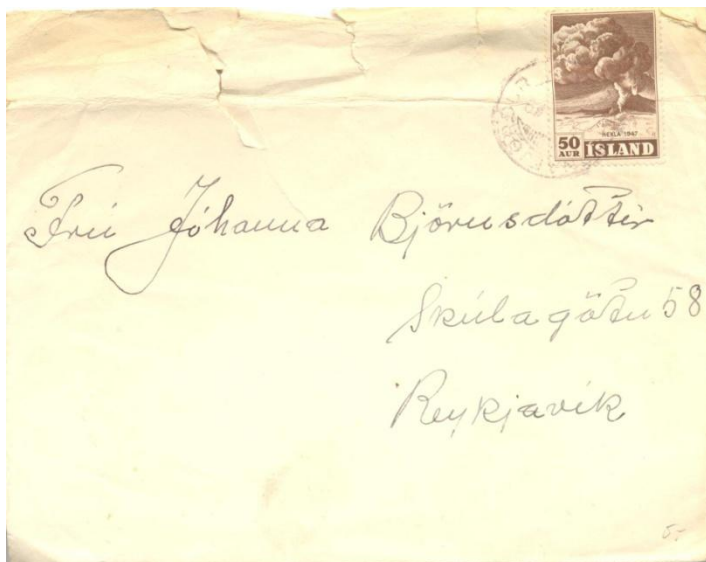 HEKLA 1947
50
AUR ÍSLAND
Frú Jóhanna Björnsdóttir
Skúlagötu 58
Reykjavík
5-